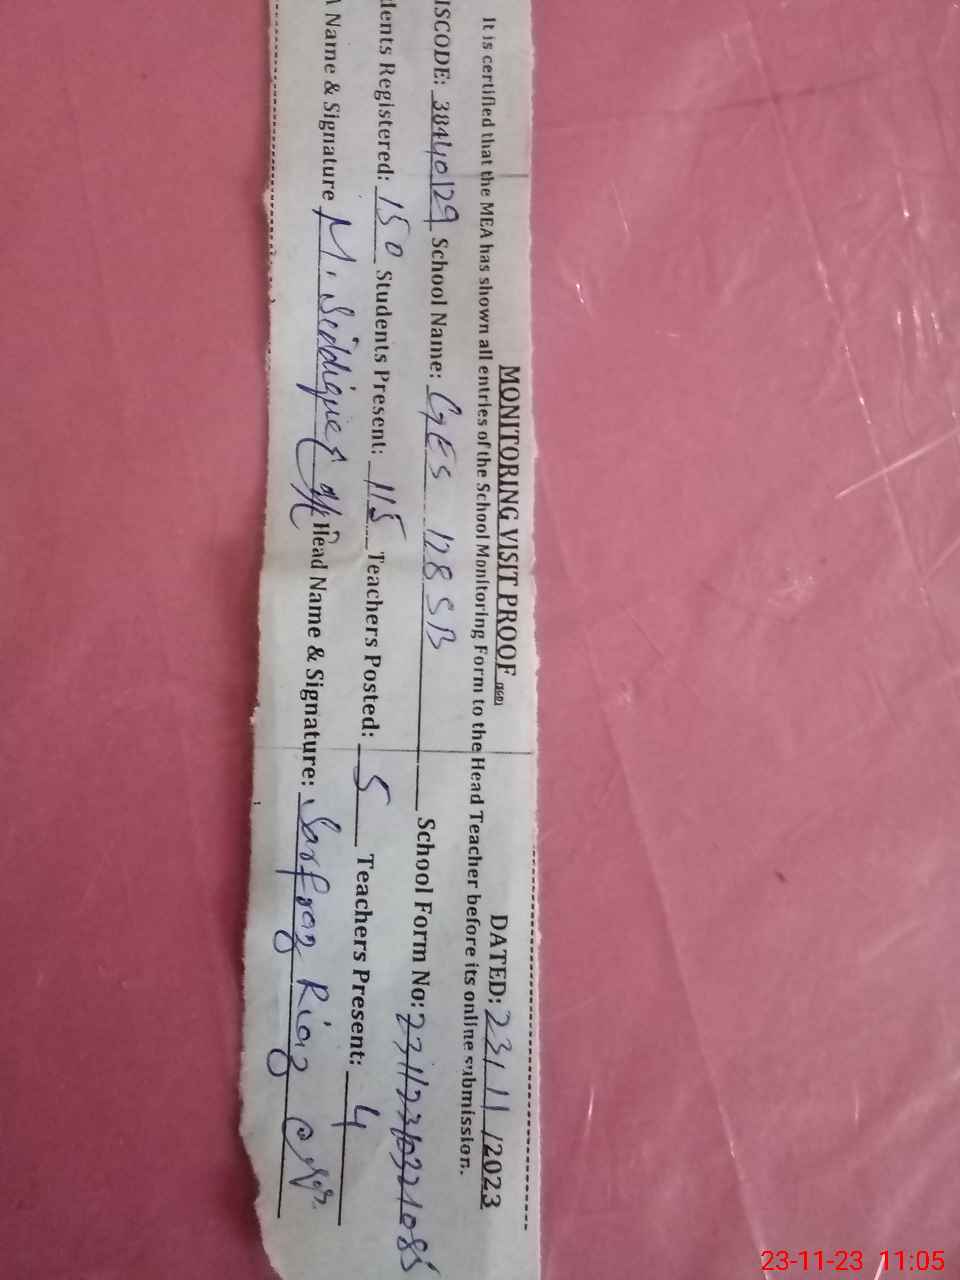 MONITORING VISIT PROOF (SGD) DATED: 23/11/2023
It is certified that the MEA has shown all entries of the School Monitoring Form to the Head Teacher before its online submission.
ISCODE: 38440129 School Name: GES 128 SB School Form No:
dents Registered: 150 Students Present: 115 Teachers Posted: 5 Teachers Present: 4
A Name & Signature M. Siddique Head Name & Signature: Sarfraz Riaz
23-11-23 11:05